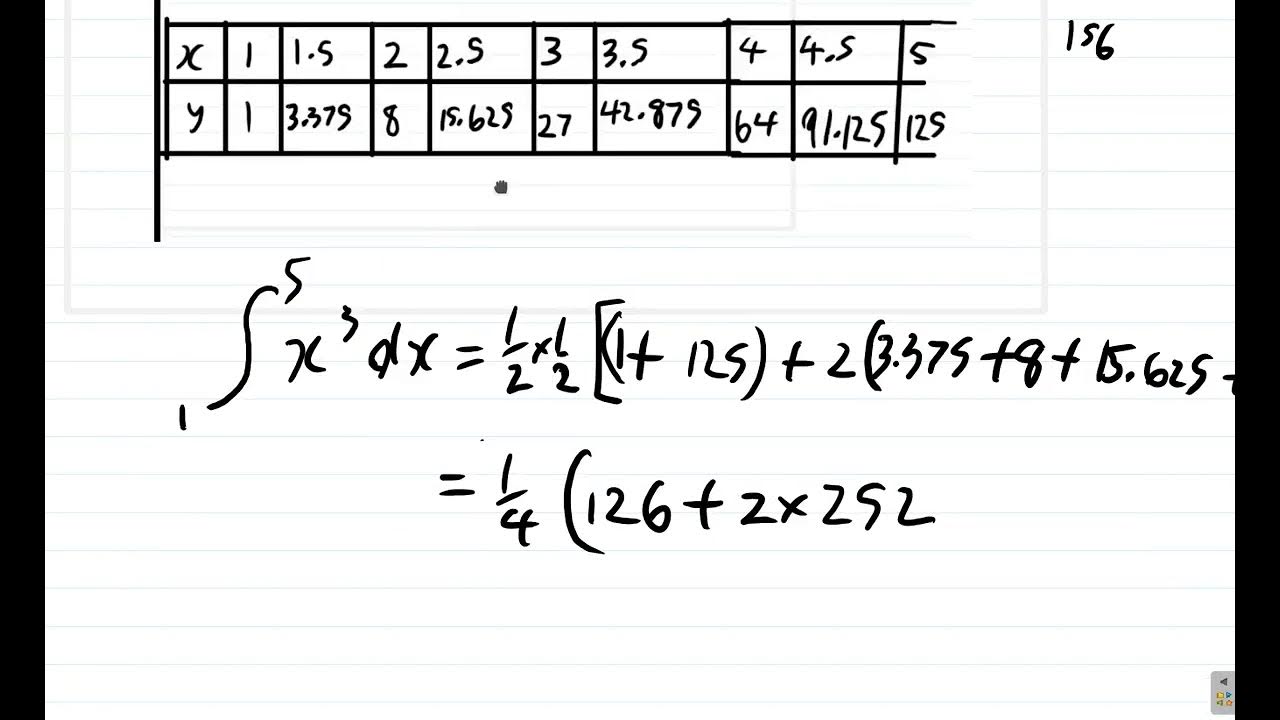 x 1 1.5 2 2.5 3 3.5 4 4.5 5
y 1 3.375 8 15.625 27 42.875 64 91.125 125
156
∫₁⁵ x³ dx = 1/2 × 1/2 [(1 + 125) + 2(3.375 + 8 + 15.625 +
= 1/4 (126 + 2 × 252